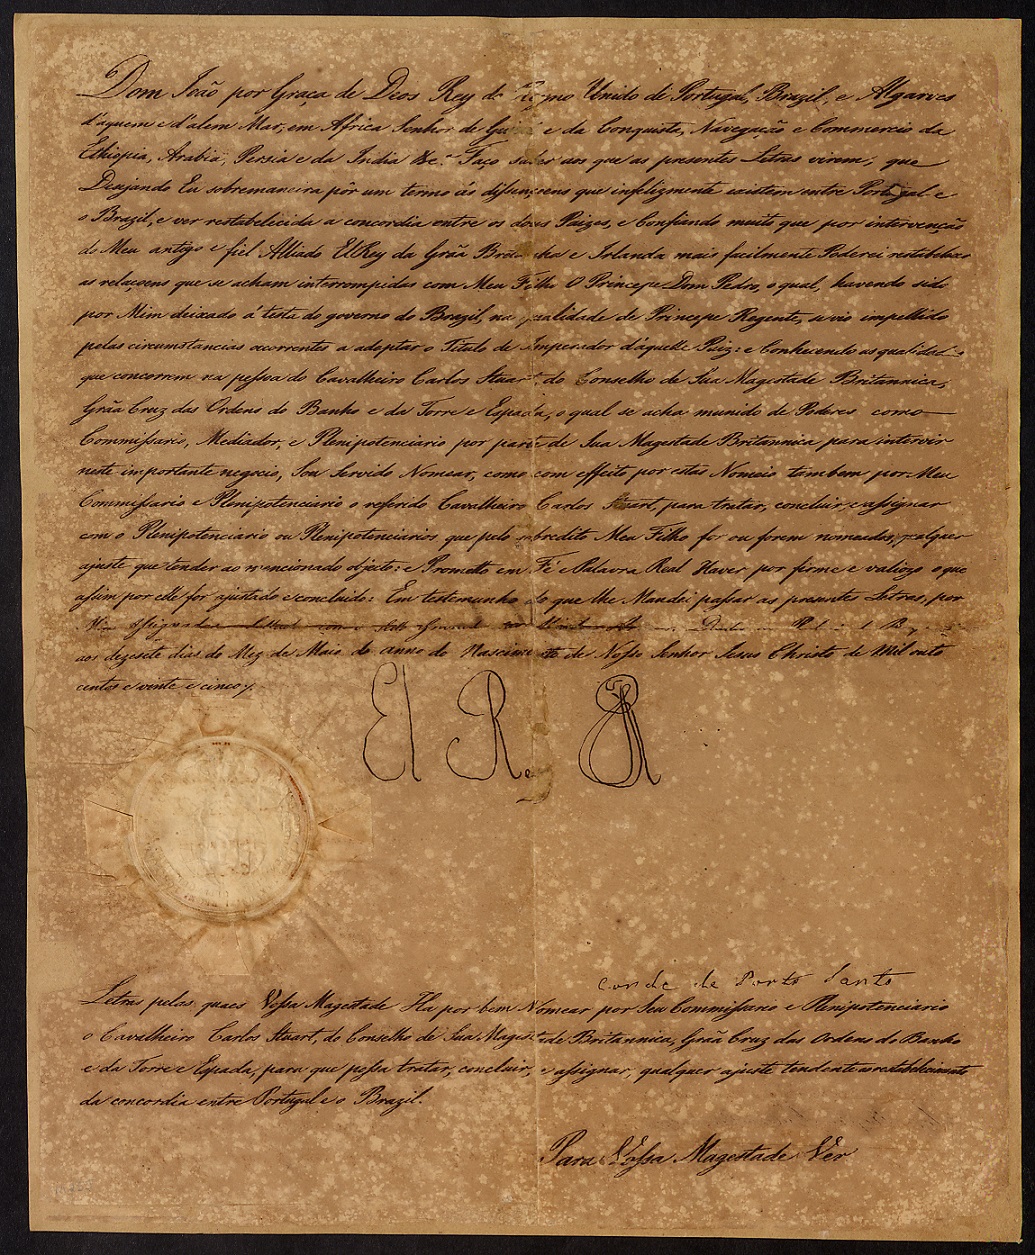 Dom João por Graça de Deos Rey do Reyno Unido de Portugal, Brazil, e Algarves
d'aquem e d'alem Mar, em Africa Senhor de Guiné e da Conquista, Navegação e Commercio da
Ethiopia, Arabia, Persia e da India &c.ª Faço saber aos que as presentes Letras virem, que
Desejando Eu sobremaneira pôr um termo ás dissençoens que infelizmente existem entre Portugal e
o Brazil, e ver restabelecida a concordia entre os dous Paizes, e Confiando muito que por intervenção
do Meu antigo e fiel Alliado ElRey da Grãa Bretanha e Irlanda mais facilmente Poderei restabelecer
as relaçoens que se acham interrompidas com Meu Filho O Principe Dom Pedro, o qual, havendo sido
por Mim deixado á testa do governo do Brazil, na qualidade de Principe Regente, se vio impellido
pelas circumstancias occorrentes a adoptar o Titulo de Imperador d'aquelle Paiz: e Conhecendo as qualidades
que concorrem na pessoa do Cavalheiro Carlos Stuart, do Conselho de Sua Magestade Britannica,
Grãa Cruz das Ordens do Banho e da Torre e Espada, o qual se acha munido de Poderes como
Commissario, Mediador, e Plenipotenciario por parte de Sua Magestade Britannica para intervir
neste importante negocio, Sou Servido Nomear, como com effeito por estas Nomeio tambem por Meu
Commissario e Plenipotenciario o referido Cavalheiro Carlos Stuart, para tratar, concluir, e assignar
com o Plenipotenciario ou Plenipotenciarios que pelo sobredito Meu Filho for ou forem nomeados, qualquer
ajuste que tender ao mencionado objecto: e Prometto em Fé e Palavra Real Haver por firme e valiozo o que
assim por elle for ajustado e concluido: Em testemunho do que lhe Mandei passar as presentes Letras, por
Mim
aos dezesete dias do Mez de Maio do anno do Nascimento de Nosso Senhor Jesus Christo de mil oito
centos e vinte e cinco.
El Rey
Conde de Porto Santo
Letras pelas quaes Vossa Magestade Ha por bem Nomear por Seu Commissario e Plenipotenciario
o Cavalheiro Carlos Stuart, do Conselho de Sua Magestade Britannica, Grãa Cruz das Ordens do Banho
e da Torre e Espada, para que possa tratar, concluir, e assignar, qualquer ajuste tendente ao restabelecimento
da concordia entre Portugal e o Brazil.
Para Vossa Magestade Ver